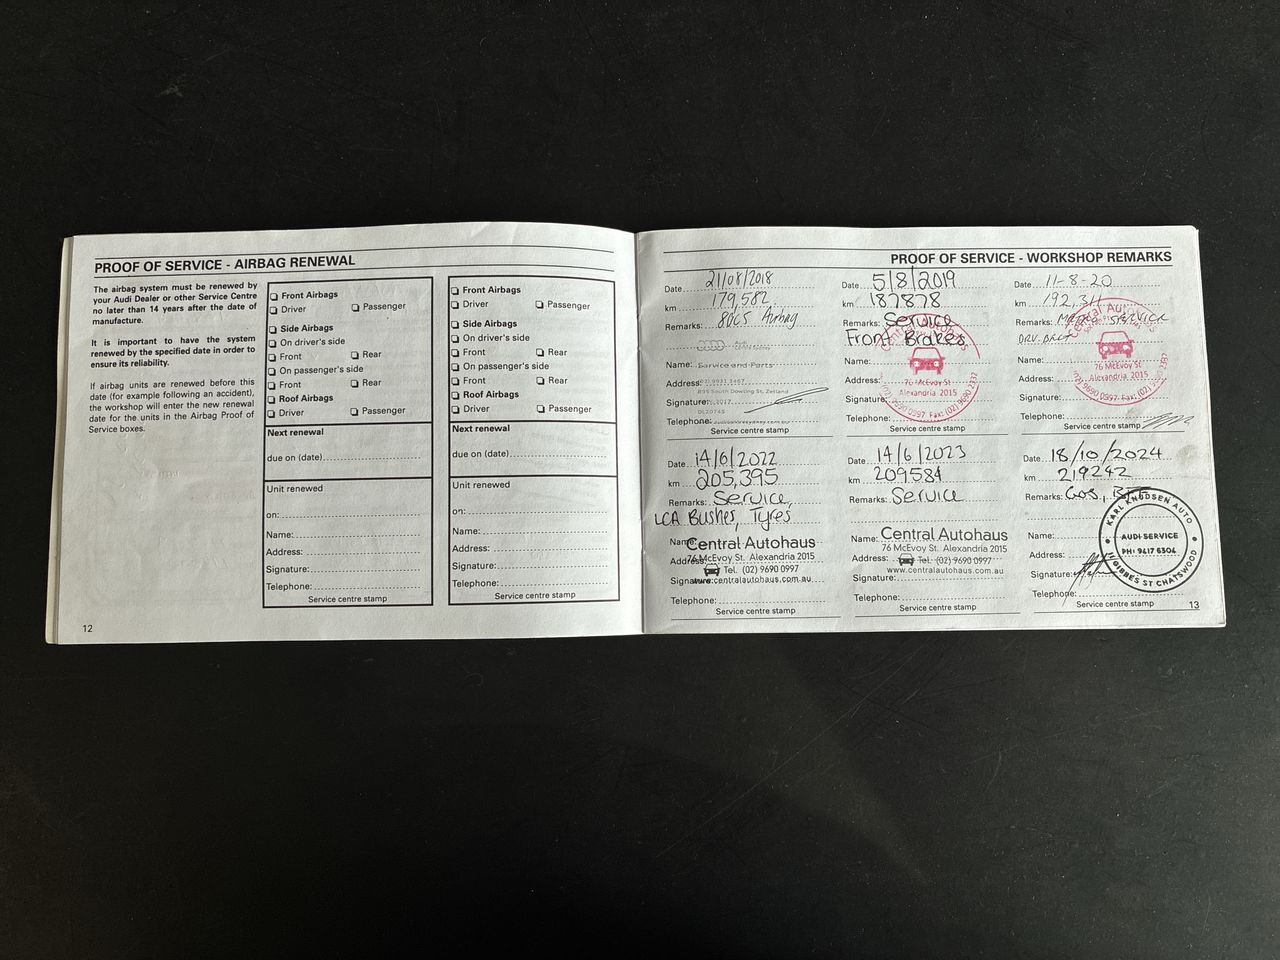 PROOF OF SERVICE - AIRBAG RENEWAL
The airbag system must be renewed by
your Audi Dealer or other Service Centre
no later than 14 years after the date of
manufacture.
It is important to have the system
renewed by the specified date in order to
ensure its reliability.
If airbag units are renewed before this
date (for example following an accident),
the workshop will enter the new renewal
date for the units in the Airbag Proof of
Service boxes.
Front Airbags
Driver Passenger
Side Airbags
On driver's side
Front Rear
On passenger's side
Front Rear
Roof Airbags
Driver Passenger
Next renewal
due on (date)
Unit renewed
on:
Name:
Address:
Signature:
Telephone:
Service centre stamp
Front Airbags
Driver Passenger
Side Airbags
On driver's side
Front Rear
On passenger's side
Front Rear
Roof Airbags
Driver Passenger
Next renewal
due on (date)
Unit renewed
on:
Name:
Address:
Signature:
Telephone:
Service centre stamp
12
PROOF OF SERVICE - WORKSHOP REMARKS
Date 21/08/2018
km 179,582
Remarks: Airbag
Name: Service and Parts
Address:
Signature:
Telephone:
Service centre stamp
Date 5/8/2019
km 187878
Remarks: Service
Front Brakes
Name:
Address:
Signature:
Telephone:
Service centre stamp
Central Autohaus
76 McEvoy St
Alexandria 2015
Date 11-8-20
km 192,311
Remarks: SERVICE
Name:
Address:
Signature:
Telephone:
Service centre stamp
76 McEvoy St
Alexandria 2015
Date 14/6/2022
km 205,395
Remarks: Service,
LCA Bushes, Tyres
Name:
Central Autohaus
76 McEvoy St. Alexandria 2015
Address:
Tel. (02) 9690 0997
Signature:
www.centralautohaus.com.au
Telephone:
Service centre stamp
Date 14/6/2023
km 209584
Remarks: Service
Name:
Central Autohaus
76 McEvoy St. Alexandria 2015
Address:
Tel. (02) 9690 0997
www.centralautohaus.com.au
Signature:
Telephone:
Service centre stamp
Date 18/10/2024
km 219242
Remarks:
Name:
Address:
Signature:
Telephone:
Service centre stamp
KARL KNUDSEN AUTO
AUDI SERVICE
PH: 9417 6304
GIBBES ST CHATSWOOD
13